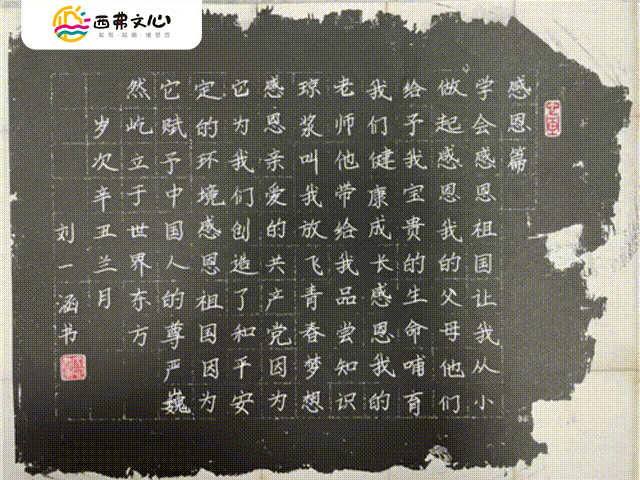 西弗文心
感恩篇
学会感恩祖国让我从小
做起感恩我的父母他们
给予我宝贵的生命哺育
我们健康成长感恩我的
老师他带给我品尝知识
琼浆叫我放飞青春梦想
感恩亲爱的共产党因为
它为我们创造了和平安
定的环境感恩祖国因为
它赋予中国人的尊严巍
然屹立于世界东方
岁次辛丑兰月
刘一涵书